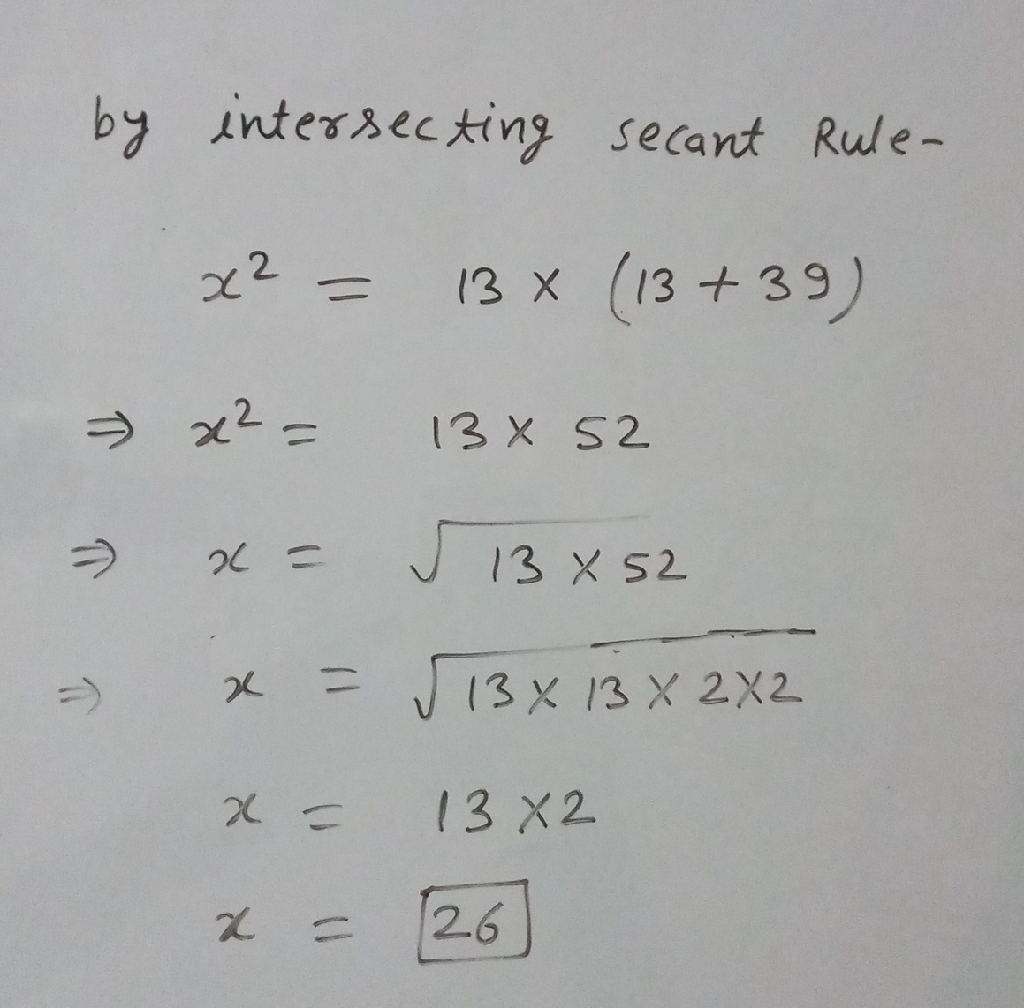 by intersecting secant Rule-
x² = 13 × (13 + 39)
⇒ x² = 13 × 52
⇒ x = √13 × 52
⇒ x = √13 × 13 × 2×2
x = 13 ×2
x = 26